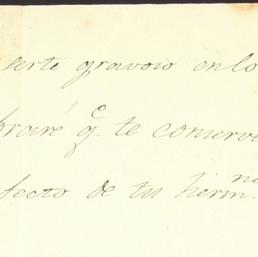 serte gravoso en lo
braré q.e te conserv
fecto de tu herm.no